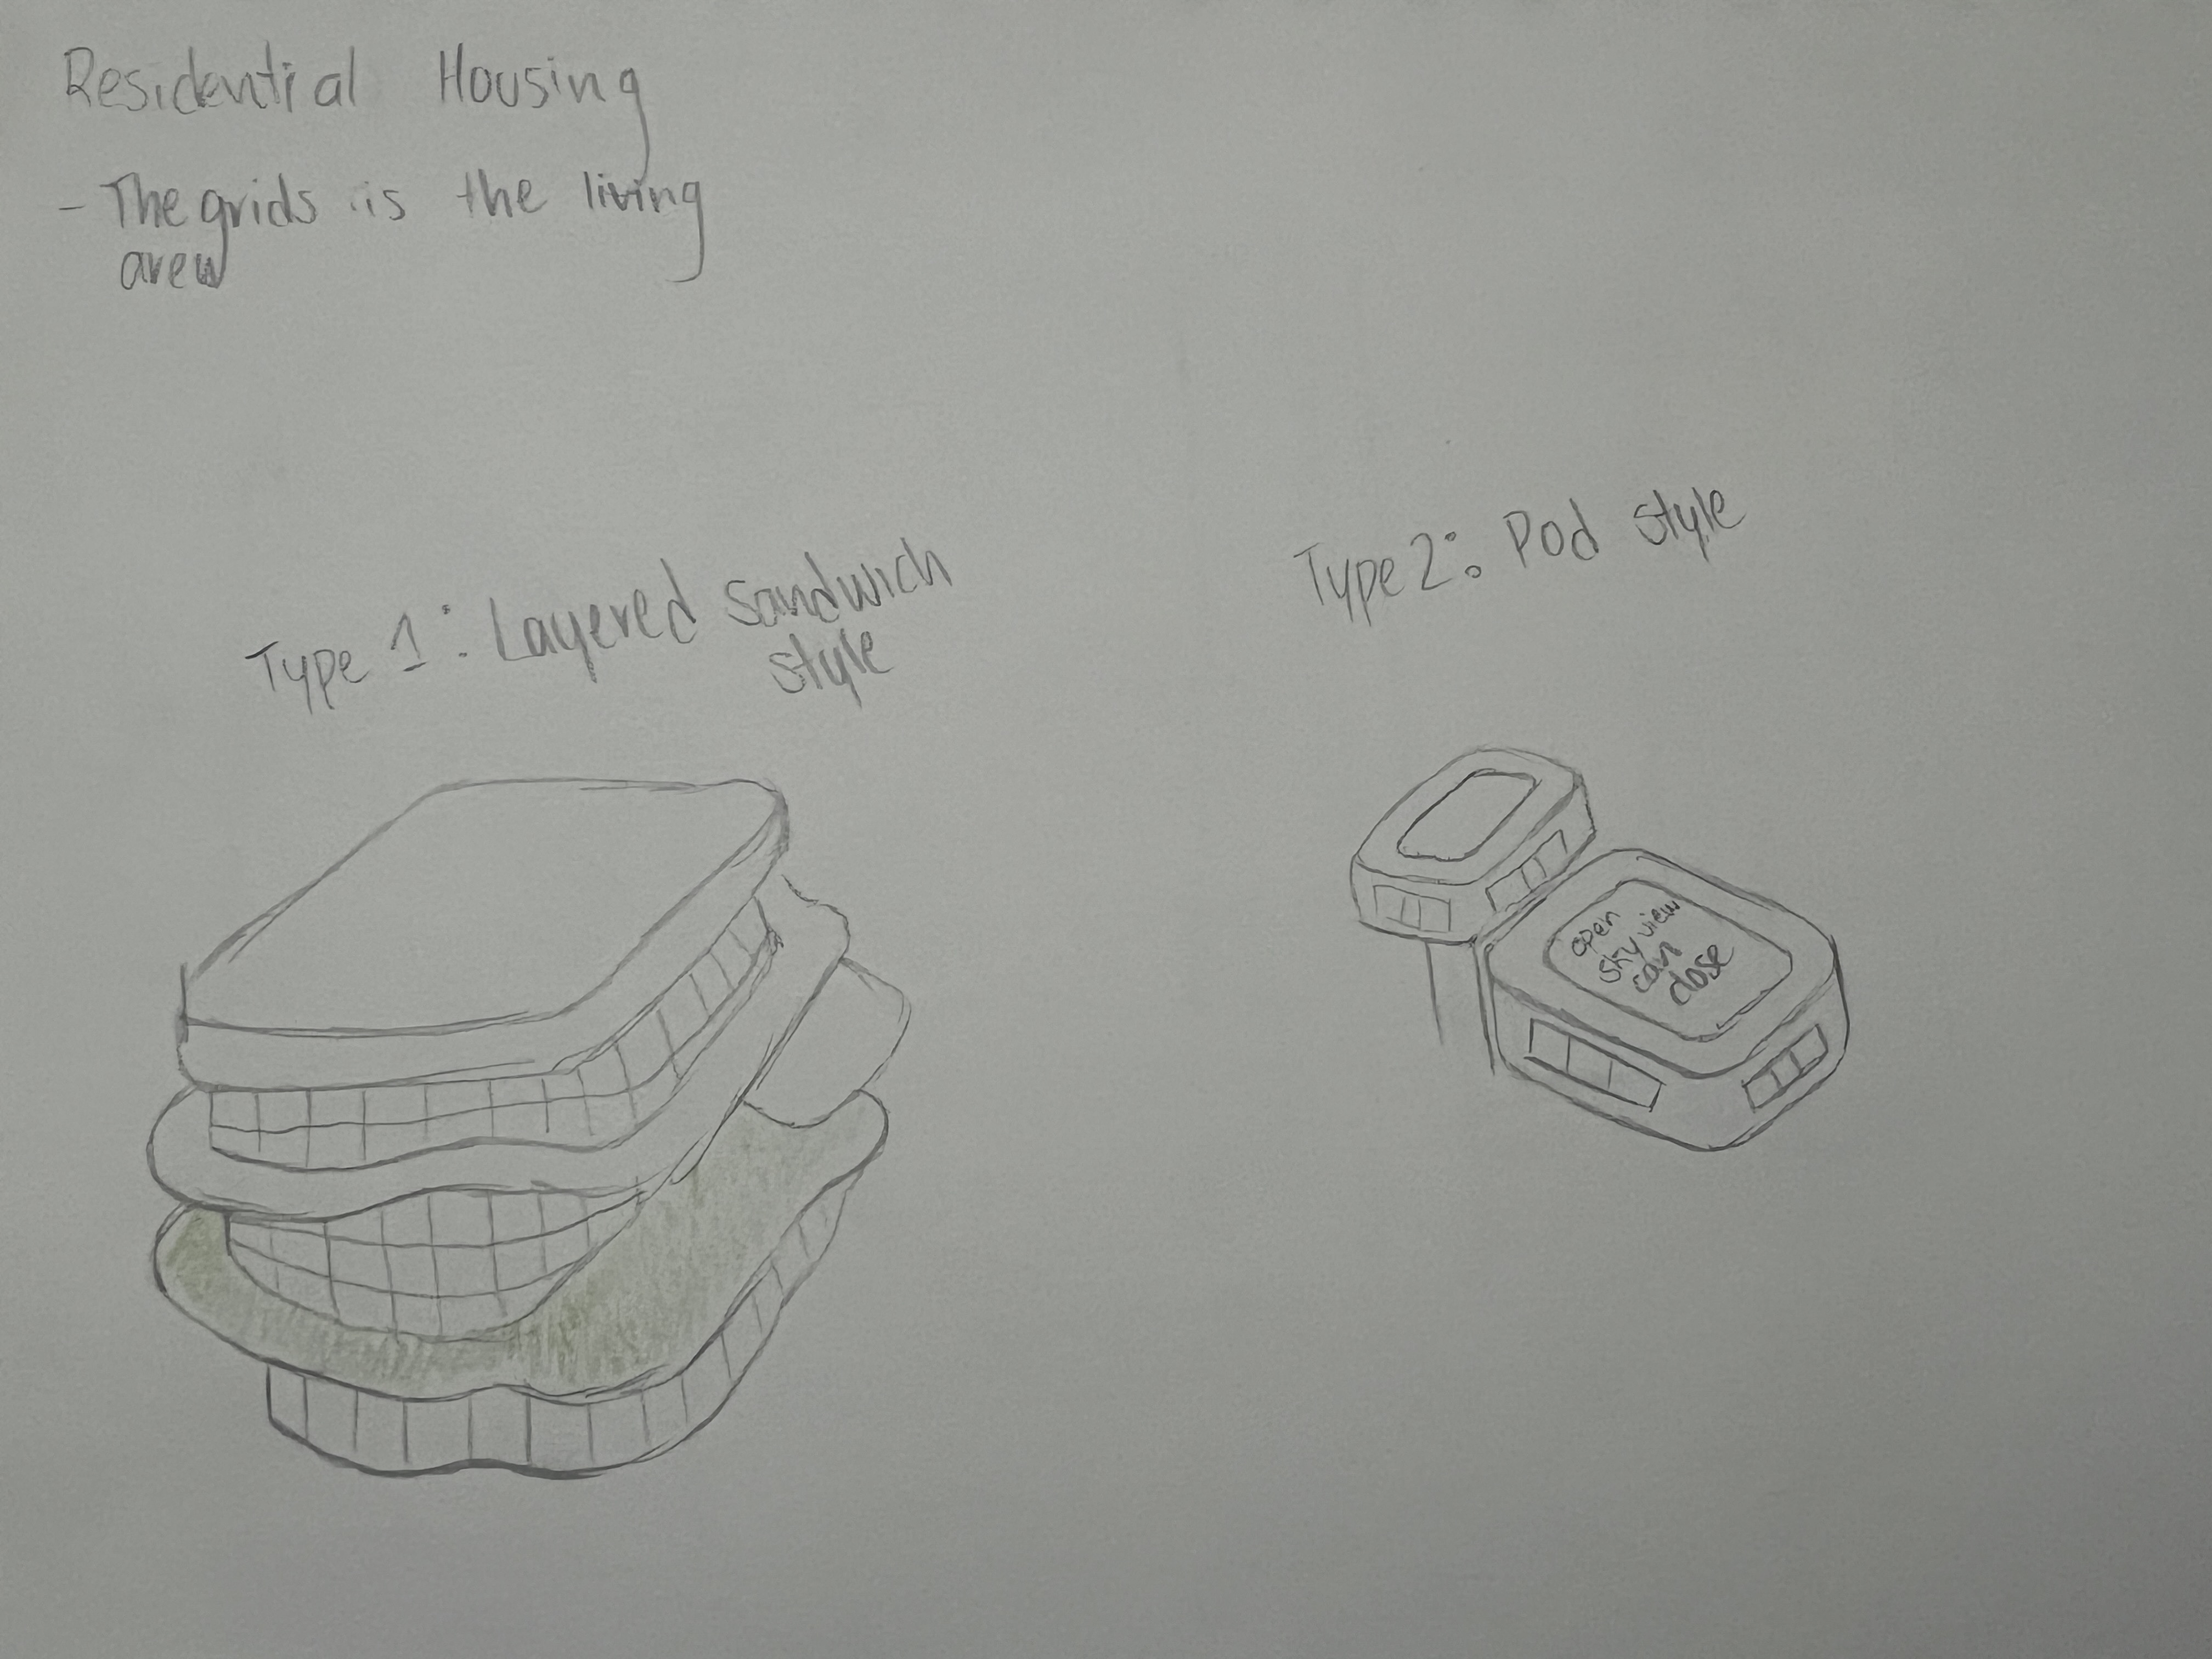 Residential Housing
- The grids is the living
area
Type 1: Layered sandwich
style
Type 2: Pod style
open
sky view
can
close